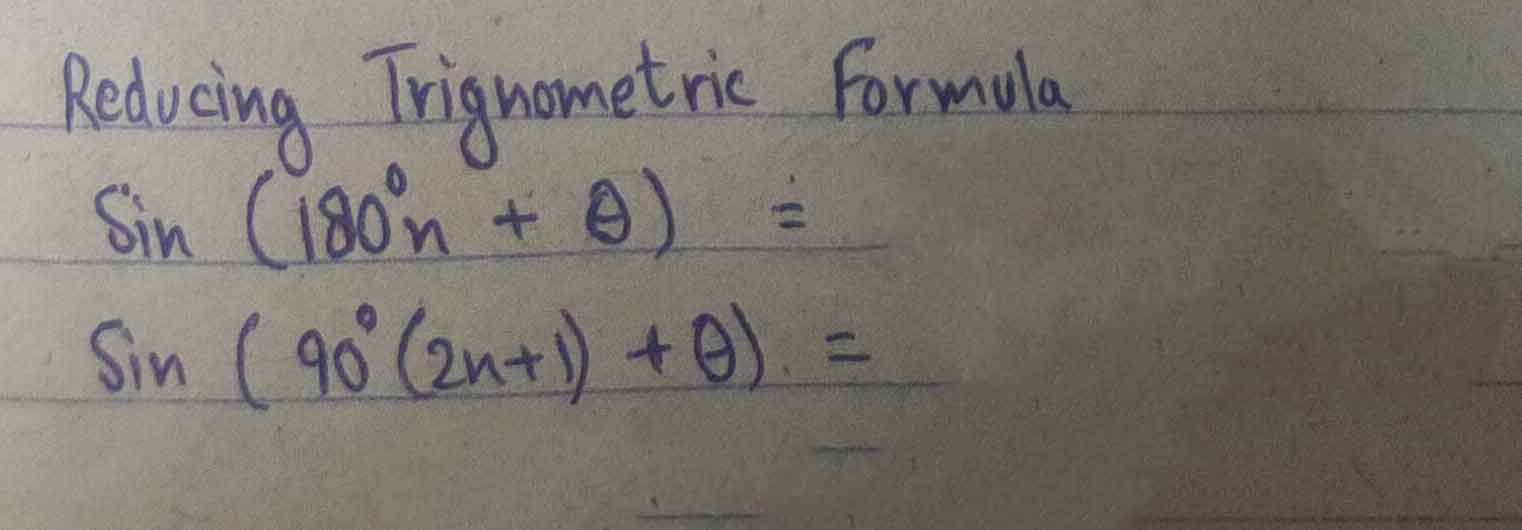 Reducing Trignometric Formula
Sin (180°n + θ) =
Sin (90°(2n+1) + θ) =